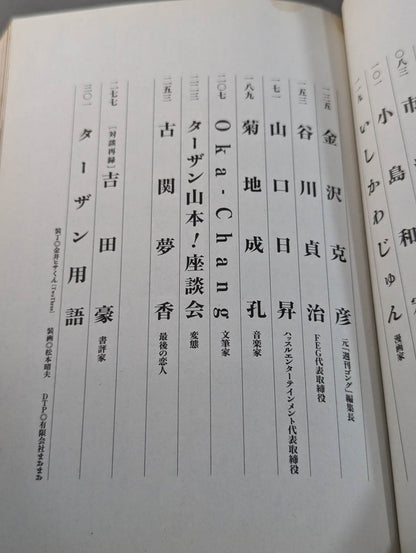 〇八三
一〇一 小島和宏
いしかわじゅん 漫画家
一三五 金沢克彦 元『週刊ゴング』編集長
一五三 谷川貞治 FEG代表取締役
一七一 山口日昇 ハッスルエンターテインメント代表取締役
一八九 菊地成孔 音楽家
二〇七 Oka-Chang 文筆家
二二三 ターザン山本！座談会 変態
二五三 古関夢香 最後の恋人
二七七 [対談再録]吉田豪 書評家
三〇一 ターザン用語
装丁◎金井ヒサくん[TwoThree] 装画◎松本晴夫 DTP◎有限会社まるまる